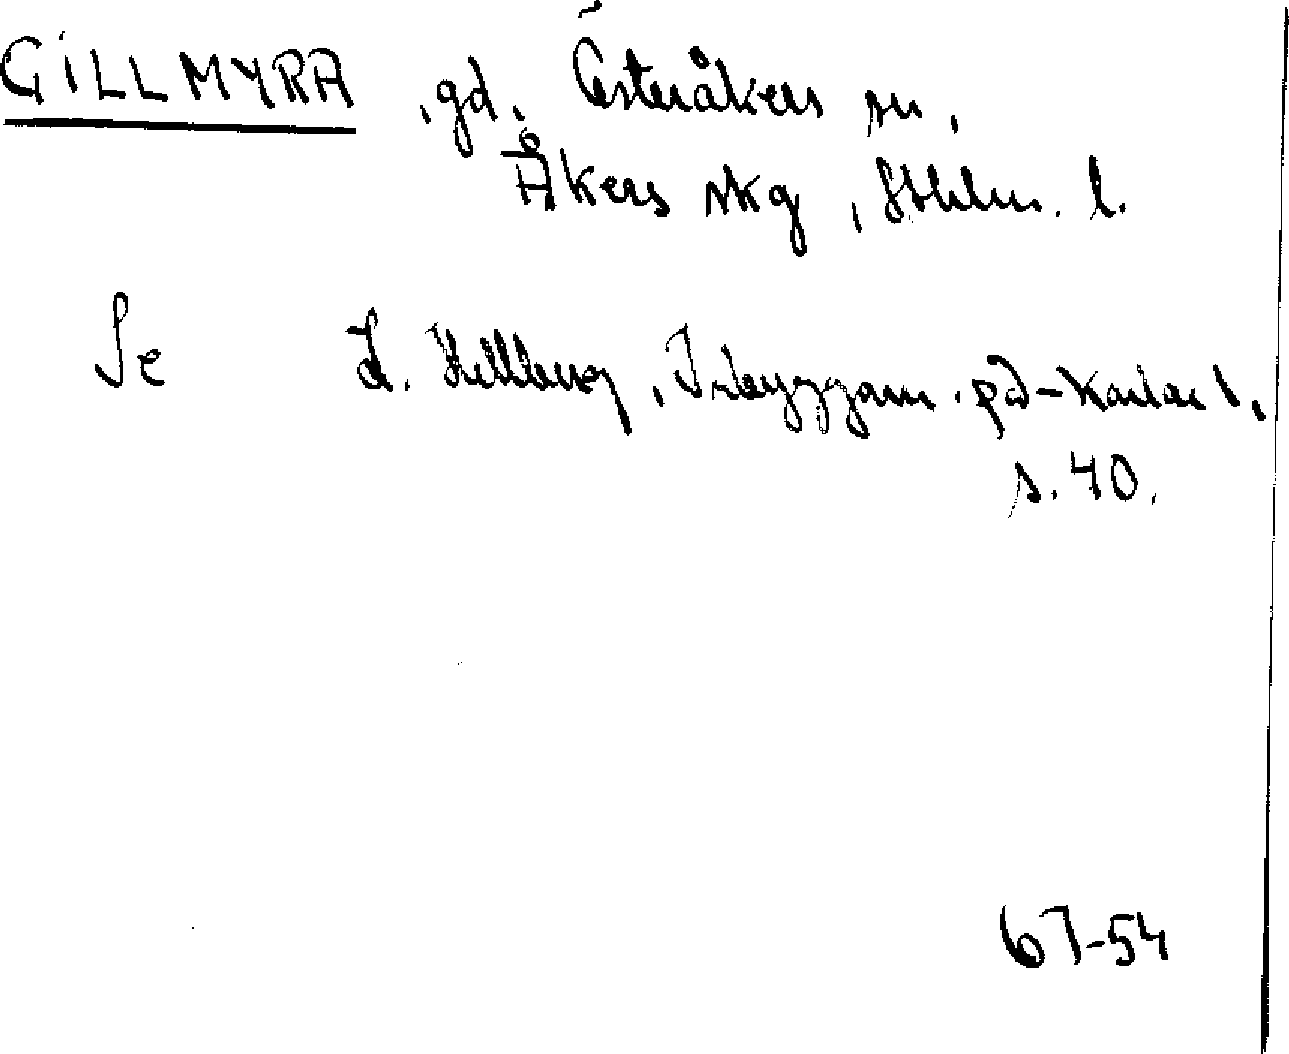 GILLMYRA, gd, Österåkers sn,
Åkers skg, Sthlms. l.
Se L. Hellberg, Inbyggarn. på -karlar 1,
s. 40.
67-54